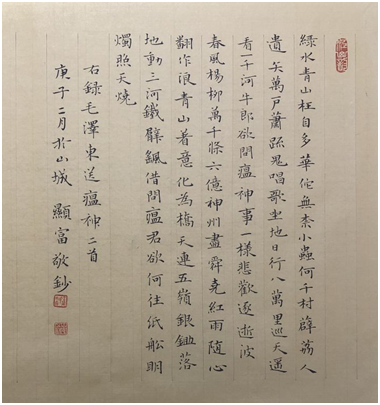 綠水青山枉自多華佗無柰小蟲何千村薜荔人
遺矢萬戶蕭踈鬼唱歌坐地日行八萬里巡天遥
看一千河牛郎欲問瘟神事一樣悲歡逐逝波
春風楊柳萬千條六億神州盡舜堯紅雨隨心
翻作浪青山着意化為橋天連五嶺銀鋤落
地動三河鐵臂颻借問瘟君欲何往紙船明
燭照天燒
右錄毛澤東送瘟神二首
庚子二月於山城 顯富敬鈔